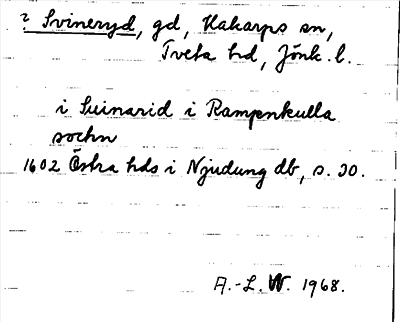 ? Svineryd, gd, Hakarps sn,
Tveta hd, Jönk. l.
i Suinarid i Rampnkulla
sochn
1602 Östra hds i Njudung db, s. 30.
A.-L. W. 1968.